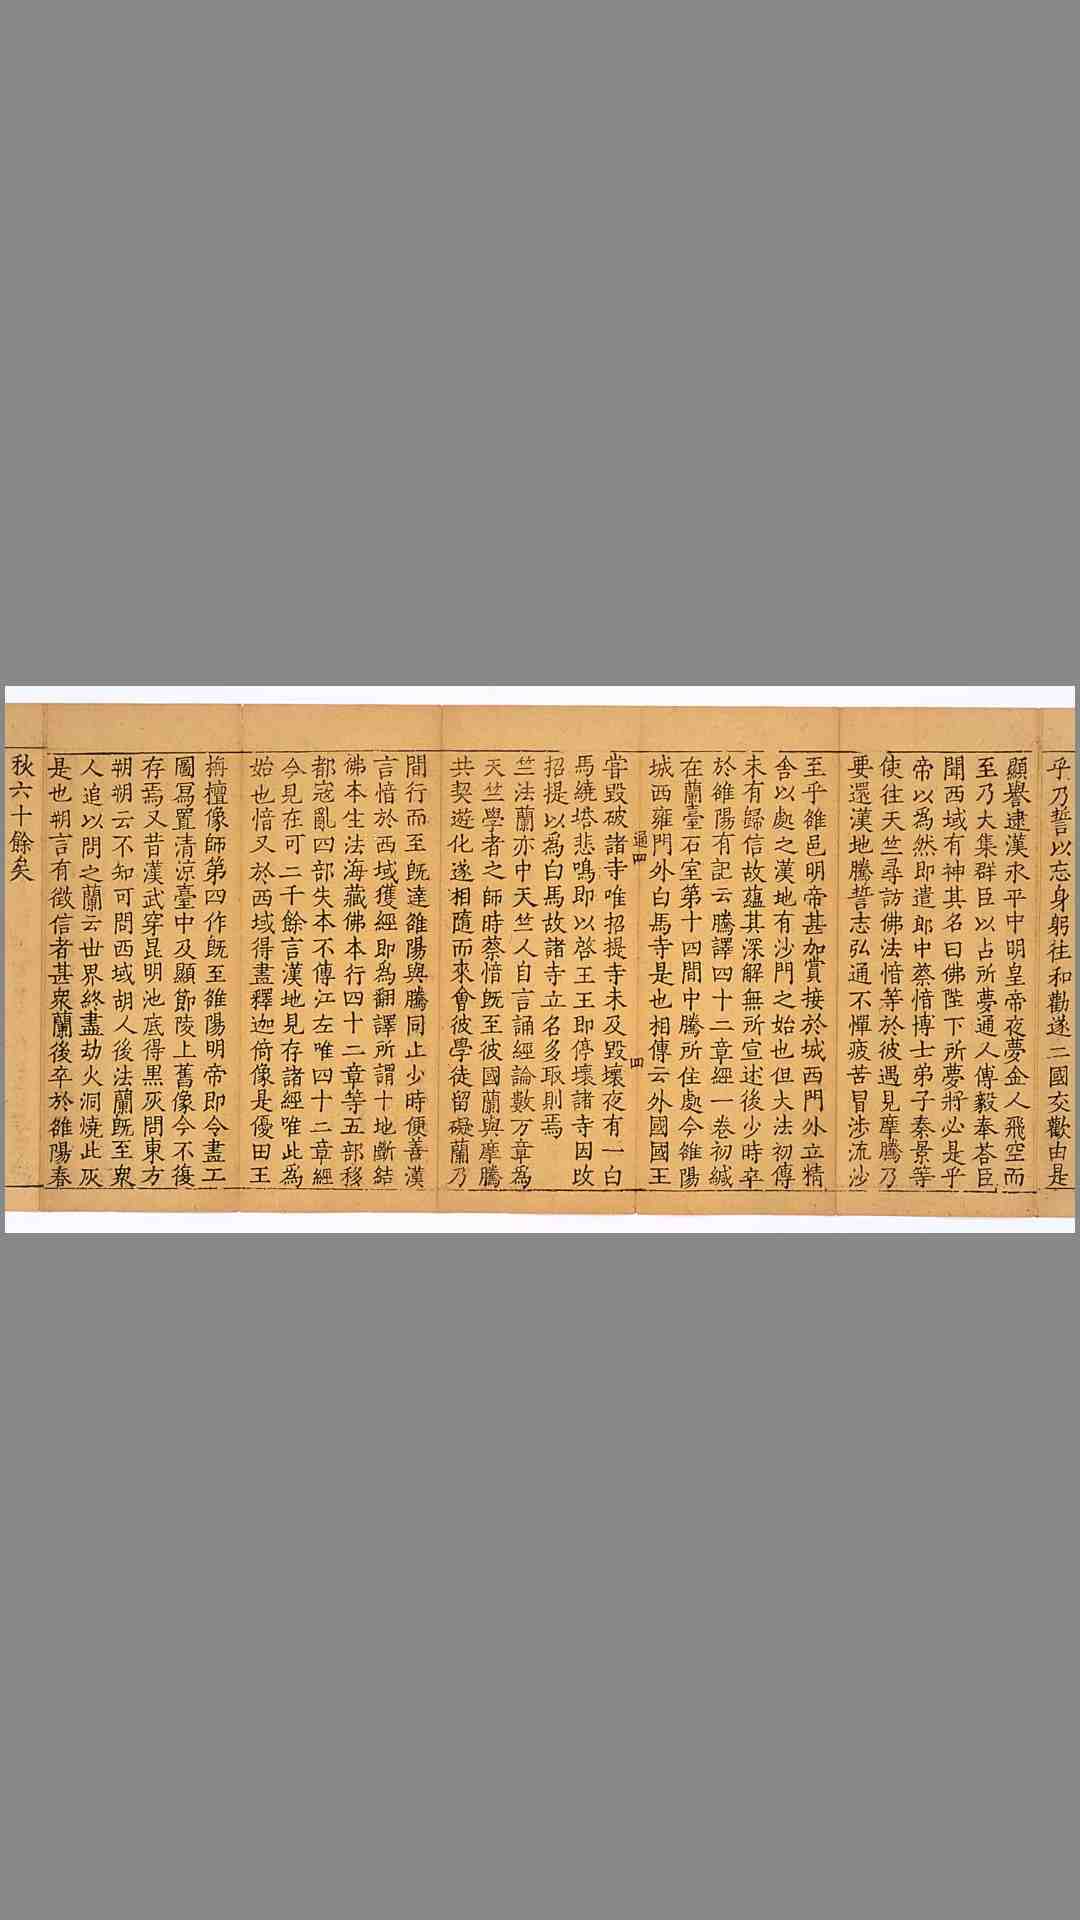 乎乃誓以忘身躬往和勸遂二國交歡由是
顯譽逮漢永平中明皇帝夜夢金人飛空而
至乃大集群臣以占所夢通人傅毅奉荅臣
聞西域有神其名曰佛陛下所夢將必是乎
帝以為然即遣郎中蔡愔博士弟子秦景等
使往天竺尋訪佛法愔等於彼遇見摩騰乃
要還漢地騰誓志弘通不憚疲苦冒涉流沙
至乎雒邑明帝甚加賞接於城西門外立精
舍以處之漢地有沙門之始也但大法初傳
未有歸信故蘊其深解無所宣述後少時卒
於雒陽有記云騰譯四十二章經一卷初緘
在蘭臺石室第十四間中騰所住處今雒陽
城西雍門外白馬寺是也相傳云外國國王
通四 四
甞毀破諸寺唯招提寺未及毀壞夜有一白
馬繞塔悲鳴即以啓王王即停壞諸寺因改
招提以為白馬故諸寺立名多取則焉
竺法蘭亦中天竺人自言誦經論數万章為
天竺學者之師時蔡愔旣至彼國蘭與摩騰
共契遊化遂相隨而來會彼學徒留礙蘭乃
間行而至旣達雒陽與騰同止少時便善漢
言愔於西域獲經即為翻譯所謂十地斷結
佛本生法海藏佛本行四十二章等五部移
都寇亂四部失本不傳江左唯四十二章經
今見在可二千餘言漢地見存諸經唯此為
始也愔又於西域得畫釋迦倚像是優田王
栴檀像師第四作旣至雒陽明帝即令畫工
圖寫置清涼臺中及顯節陵上舊像今不復
存焉又昔漢武穿昆明池底得黑灰問東方
朔朔云不知可問西域胡人後法蘭旣至衆
人追以問之蘭云世界終盡劫火洞燒此灰
是也朔言有徵信者甚衆蘭後卒於雒陽春
秋六十餘矣